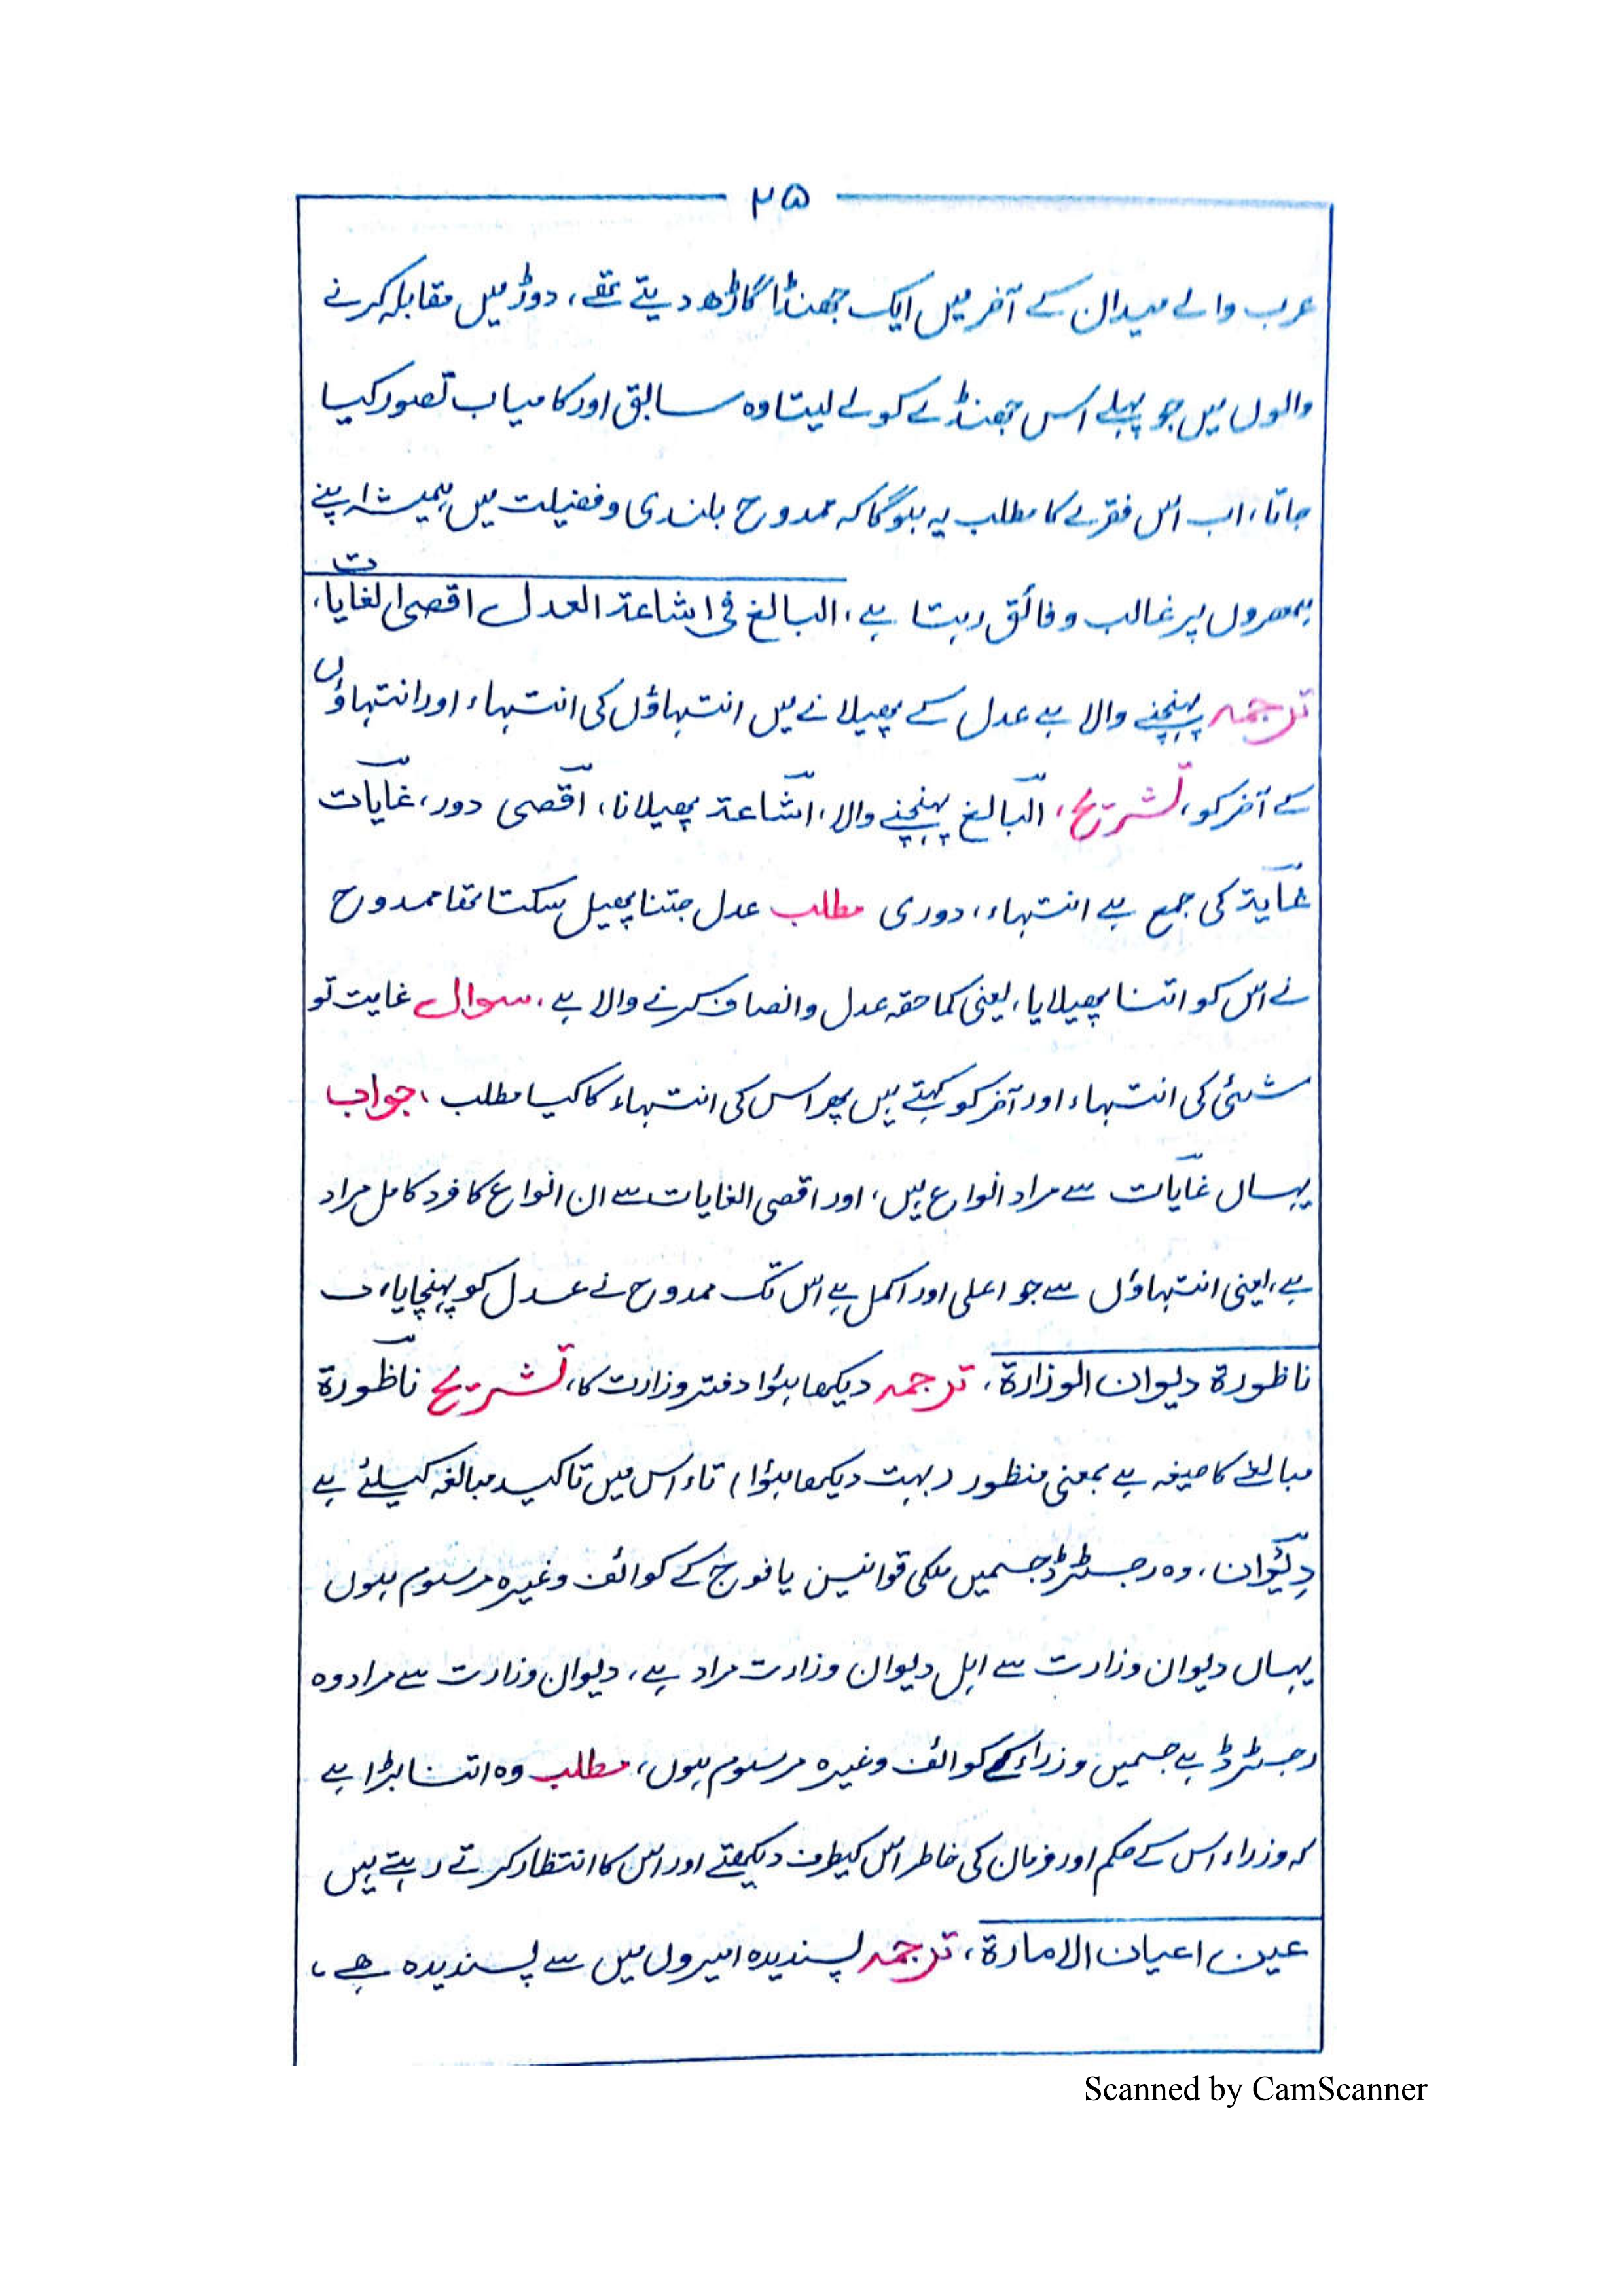 ۲۵
عرب والے میدان کے آخر میں ایک جھنڈا گاڑھ دیتے تھے، دوڑ میں مقابلہ کرنے
والوں میں جو پہلے اس جھنڈے کو لے لیتا وہ سابق اور کامیاب تصور کیا
جاتا، اب اس فقرے کا مطلب یہ ہوگا کہ ممدوح بلندی و فضیلت میں ہمیشہ اپنے
ہمعصروں پر غالب و فائق رہتا ہے، البالغ فی اشاعۃ العدل اقصی الغایات،
ترجمہ پہنچنے والا ہے عدل کے پھیلانے میں انتہاؤں کی انتہاء اور انتہاؤں
کے آخر کو، تشریح، البالغ پہنچنے والا، اشاعۃ پھیلانا، اقصی دور، غایات
غایۃ کی جمع ہے انتہاء، دوری مطلب عدل جتنا پھیل سکتا تھا ممدوح
نے اس کو اتنا پھیلایا، یعنی کما حقہ عدل و انصاف کرنے والا ہے، سوال غایت تو
شئی کی انتہاء اور آخر کو کہتے ہیں پھر اس کی انتہاء کا کیا مطلب، جواب
یہاں غایات سے مراد انواع ہیں، اور اقصی الغایات سے ان انواع کا فرد کامل مراد
ہے، یعنی انتہاؤں سے جو اعلی اور اکمل ہے اس تک ممدوح نے عدل کو پہنچایا،
ناظورۃ دیوان الوزارۃ، ترجمہ دیکھا ہؤا دفتر وزارت کا، تشریح ناظورۃ
مبالغے کا صیغہ ہے بمعنی منظور (بہت دیکھا ہؤا) تاء اس میں تاکید مبالغہ کیلئے ہے
دِیْوان، وہ رجسٹرڈ جسمیں ملکی قوانین یا فوج کے کوائف وغیرہ مرسوم ہوں
یہاں دیوان وزارت سے اہل دیوان وزارت مراد ہے، دیوان وزارت سے مراد وہ
رجسٹرڈ ہے جسمیں وزراء کے کوائف وغیرہ مرسوم ہوں، مطلب وہ اتنا بڑا ہے
کہ وزراء اس کے حکم اور فرمان کی خاطر اس کیطرف دیکھتے اور اس کا انتظار کرتے رہتے ہیں
عین اعیان الامارۃ، ترجمہ پسندیدہ امیروں میں سے پسندیدہ ھے،
Scanned by CamScanner